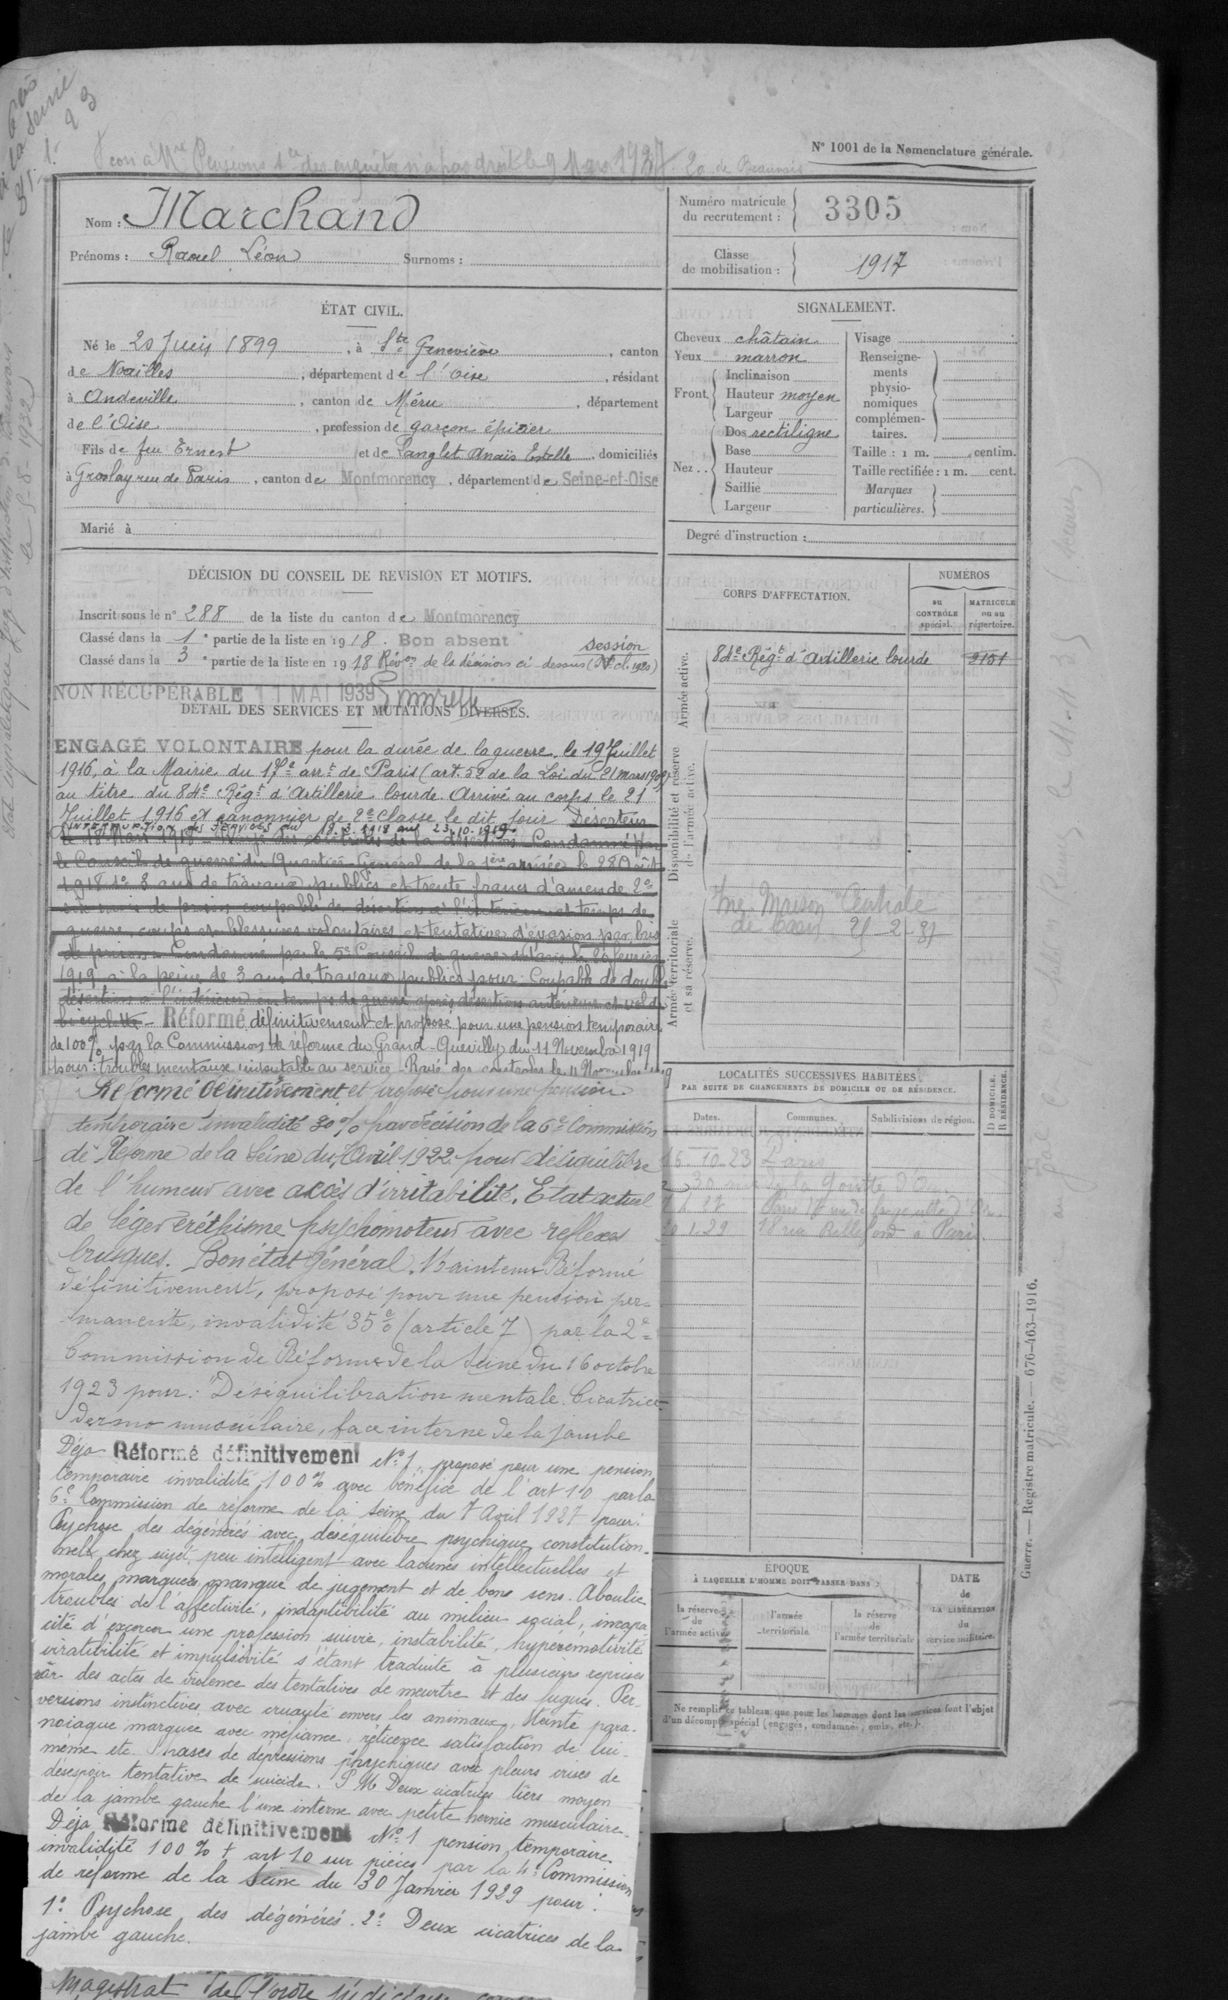 N° 1001 de la Nomenclature générale.
Nom : Marchand
Prénoms : Raoul Léon Surnoms :
Numéro matricule du recrutement : 3305
Classe de mobilisation : 1917
ÉTAT CIVIL.
Né le 20 Juin 1899, à Ste Geneviève, canton
de Noailles, département de l'Oise, résidant
à Andeville, canton de Méru, département
de l'Oise, profession de garçon épicier
Fils de feu Ernest et de Langlet Anaïs Estelle, domiciliés
à Groslay rue de Paris, canton de Montmorency, département de Seine-et-Oise
Marié à
SIGNALEMENT.
Cheveux châtain
Yeux marron
Front. Inclinaison
Hauteur moyen
Largeur
Nez.. Dos rectiligne
Base
Hauteur
Saillie
Largeur
Visage
Renseignements physionomiques complémentaires.
Taille : 1 m. centim.
Taille rectifiée : 1 m. cent.
Marques particulières.
Degré d'instruction :
DÉCISION DU CONSEIL DE REVISION ET MOTIFS.
Inscrit sous le n° 288 de la liste du canton de Montmorency
Classé dans la 1e partie de la liste en 1918. Bon absent
Classé dans la 3e partie de la liste en 1918 Révon de la décision ci-dessus (session cl. 1920)
NON RÉCUPÉRABLE 11 MAI 1939
DÉTAIL DES SERVICES ET MUTATIONS DIVERSES.
ENGAGÉ VOLONTAIRE pour la durée de la guerre, le 19 Juillet
1916, à la Mairie du 17e arrt de Paris (art. 52 de la Loi du 21 mars 1905)
au titre du 84e Régt d'Artillerie lourde. Arrivé au corps le 21
Juillet 1916 et canonnier de 2e classe le dit jour Déserteur
INTERRUPTION des SERVICES du 18.3.1918 au 23.10.1919
le 18 Mars 1918 de la désertion Condamné par
le Conseil de guerre du Quartier Général de la 1ère armée le 28 Août
1918 1° 8 ans de travaux publics et trente francs d'amende 2°
six mois de prison coupable de désertion à l'intérieur en temps de
guerre, coups et blessures volontaires et tentative d'évasion par bris
de prison Condamné par le 5e Conseil de guerre de Paris le 20 février
1919 à la peine de 3 ans de travaux publics pour : Coupable de double
désertion à l'intérieur en temps de guerre après désertion antérieure et vol de
bicyclette - Réformé définitivement et proposé pour une pension temporaire
de 100% par la Commission de réforme du Grand-Quevilly du 11 Novembre 1919
pour : troubles mentaux imputable au service - Rayé des contrôles le 11 Novembre 1919
Réformé définitivement et proposé pour une pension
temporaire invalidité 30% par décision de la 6e Commission
de Réforme de la Seine du 7 Avril 1922 pour déséquilibre
de l'humeur avec accès d'irritabilité. Etat actuel
de léger éréthisme psychomoteur avec reflexes
brusques. Bon état général. Maintenu Réformé
définitivement, proposé pour une pension per-
manente, invalidité 35% (article 7) par la 2e
Commission de Réforme de la Seine du 16 octobre
1923 pour : Déséquilibration mentale. Cicatrice
dermo musculaire, face interne de la jambe
Déjà Réformé définitivement N° 1, proposé pour une pension
temporaire invalidité 100% avec bénéfice de l'art 10 par la
6e Commission de réforme de la Seine du 7 Avril 1927 pour :
Psychose des dégénérés avec déséquilibre psychique constitution-
nel, chez sujet peu intelligent avec lacunes intellectuelles et
morales, marquées manque de jugement et de bons sens. Aboulie
troubles de l'affectivité, indaptibilité au milieu social, incapa
cité d'exercer une profession suivie, instabilité, hyperémotivité
irratibilité et impulsivité s'étant traduite à plusieurs reprises
par des actes de violence des tentatives de meurtre et des fugues. Per
versions instinctives, avec cruauté envers les animaux, teinte para-
noiaque marquée avec méfiance, réticence satisfaction de lui
même etc. Phases de dépressions psychiques avec pleurs crises de
désespoir tentative de suicide. P M Deux cicatrices tiers moyen
de la jambe gauche l'une interne avec petite hernie musculaire.
Déjà Réformé définitivement N° 1 pension temporaire
invalidité 100% + art 10 sur pièces par la 4e Commission
de réforme de la Seine du 30 Janvier 1929 pour :
1° Psychose des dégénérés. 2° Deux cicatrices de la
jambe gauche.
Magistrat de l'ordre judiciaire
CORPS D'AFFECTATION.
NUMÉROS
au CONTRÔLE spécial.
MATRICULE ou au répertoire.
Armée active.
84e Régt d'Artillerie lourde 2151
Disponibilité et réserve de l'armée active.
Armée territoriale et sa réserve.
Maison Centrale
de Caen
LOCALITÉS SUCCESSIVES HABITÉES
PAR SUITE DE CHANGEMENTS DE DOMICILE OU DE RÉSIDENCE.
Dates. Communes. Subdivisions de région. D DOMICILE. R RÉSIDENCE.
16 10 23 Paris
30 rue de la Goutte d'Or
1.29 18 rue à Paris
ÉPOQUE
À LAQUELLE L'HOMME DOIT PASSER DANS
la réserve de l'armée active
l'armée territoriale
la réserve de l'armée territoriale
DATE
de
LA LIBÉRATION
du
service militaire.
Ne remplir ce tableau que pour les hommes dont les services font l'objet
d'un décompte spécial (engagés, condamnés, omis, etc.).
Guerre. — Registre matricule. — 676-463-1916.